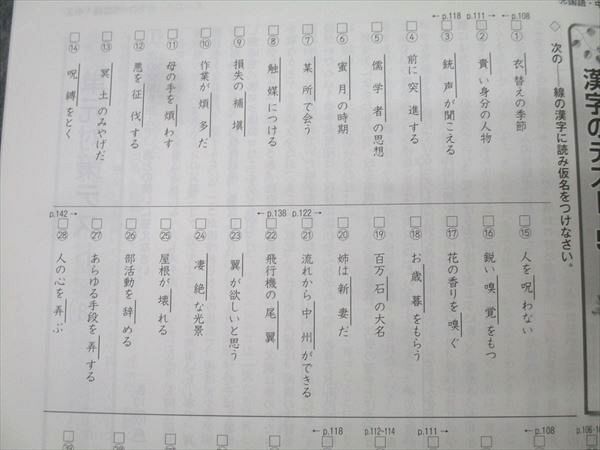 漢字のテスト
◇ 次の――線の漢字に読み仮名をつけなさい。
←p.108
□① 衣替えの季節
p.111→
□② 貴い身分の人物
←p.118
□③ 銃声が聞こえる
□④ 前に突進する
□⑤ 儒学者の思想
□⑥ 蜜月の時期
□⑦ 某所で会う
□⑧ 触媒につける
□⑨ 損失の補塡
□⑩ 作業が煩多だ
□⑪ 母の手を煩わす
□⑫ 悪を征伐する
□⑬ 冥土のみやげだ
□⑭ 呪縛をとく
□⑮ 人を呪わない
□⑯ 鋭い嗅覚をもつ
□⑰ 花の香りを嗅ぐ
□⑱ お歳暮をもらう
□⑲ 百万石の大名
□⑳ 姉は新妻だ
p.122→
□㉑ 流れから中州ができる
←p.138
□㉒ 飛行機の尾翼
□㉓ 翼が欲しいと思う
□㉔ 凄絶な光景
□㉕ 屋根が壊れる
□㉖ 部活動を辞める
□㉗ あらゆる手段を弄する
p.142→
□㉘ 人の心を弄ぶ
←p.108
p.111→
p.112~114
←p.118